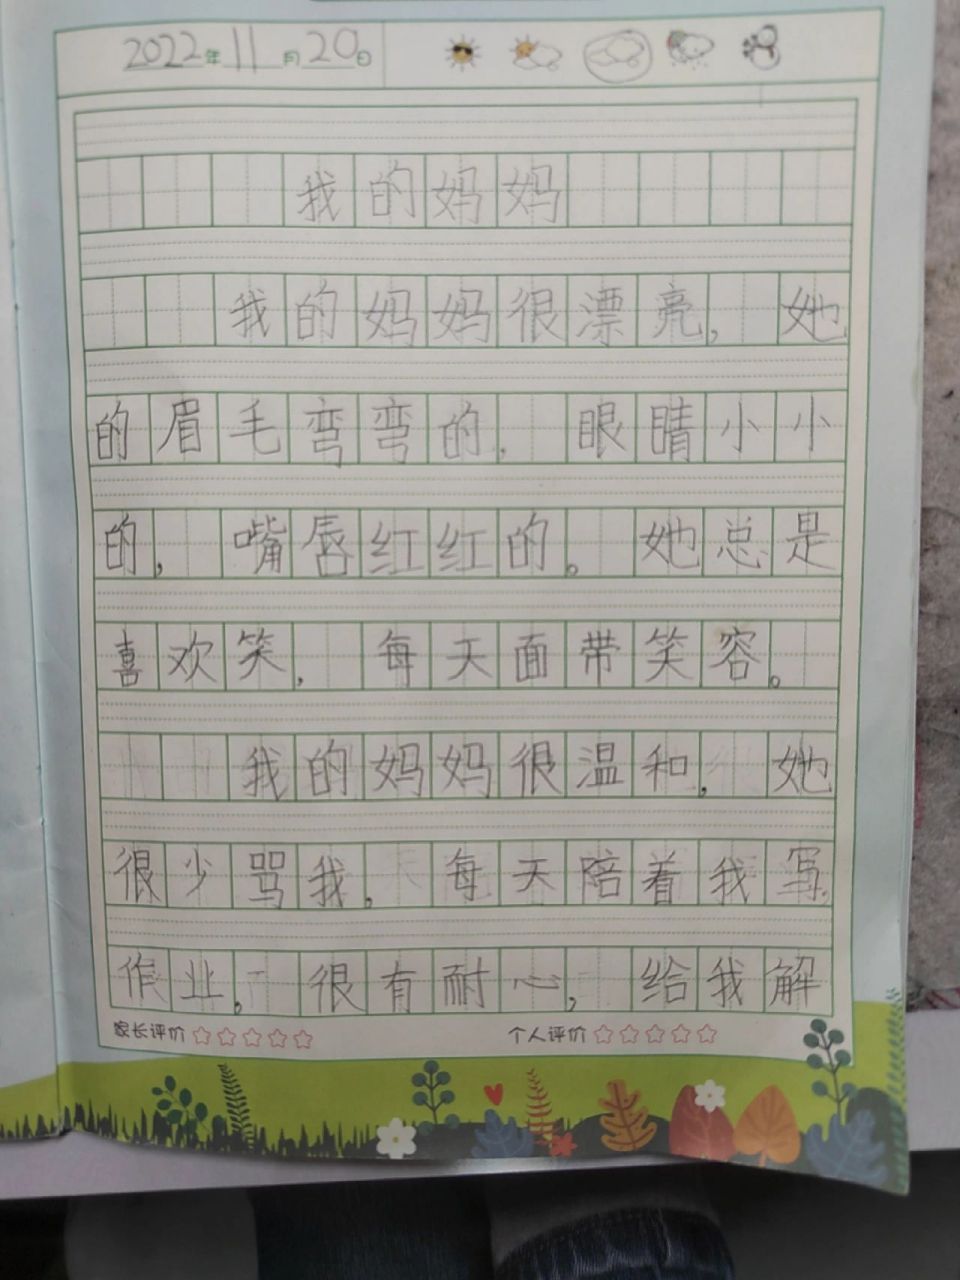 2022年11月20日
我的妈妈
我的妈妈很漂亮,她
的眉毛弯弯的,眼睛小小
的,嘴唇红红的。她总是
喜欢笑,每天面带笑容。
我的妈妈很温和,她
很少骂我。每天陪着我写
作业。很有耐心,给我解
家长评价 个人评价